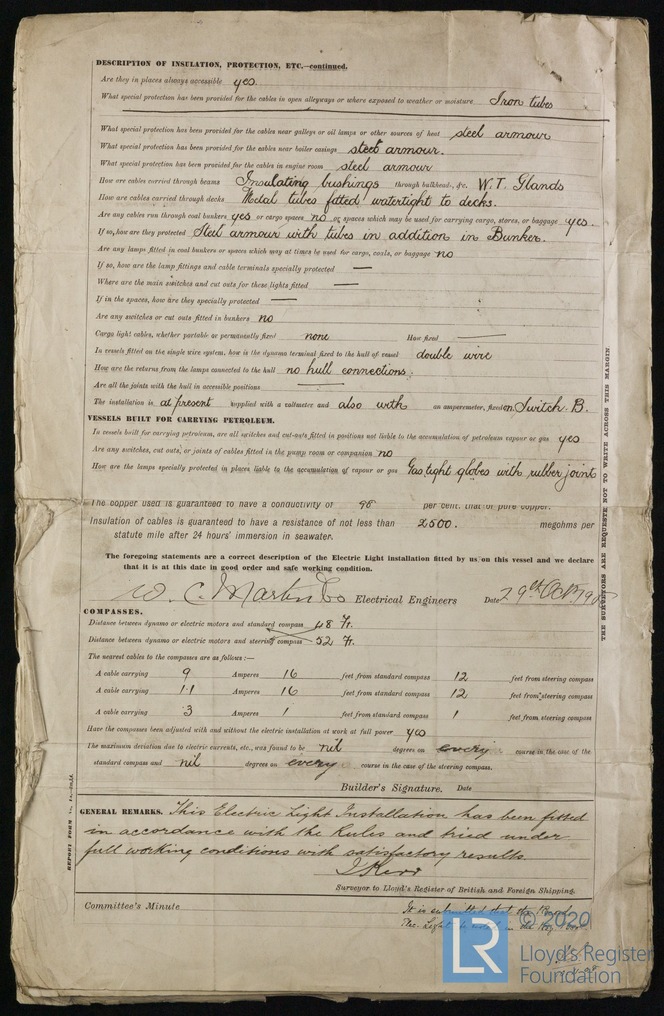 DESCRIPTION OF INSULATION, PROTECTION, ETC.—continued.
Are they in places always accessible yes.
What special protection has been provided for the cables in open alleyways or where exposed to weather or moisture Iron tubes
What special protection has been provided for the cables near galleys or oil lamps or other sources of heat steel armour
What special protection has been provided for the cables near boiler casings steel armour.
What special protection has been provided for the cables in engine room steel armour
How are cables carried through beams Insulating bushings through bulkheads, &c. W.T. Glands
How are cables carried through decks Metal tubes fitted watertight to decks.
Are any cables run through coal bunkers yes or cargo spaces no or spaces which may be used for carrying cargo, stores, or baggage yes.
If so, how are they protected Steel armour with tubes in addition in Bunker.
Are any lamps fitted in coal bunkers or spaces which may at times be used for cargo, coals, or baggage no
If so, how are the lamp fittings and cable terminals specially protected —
Where are the main switches and cut outs for these lights fitted —
If in the spaces, how are they specially protected —
Are any switches or cut outs fitted in bunkers no
Cargo light cables, whether portable or permanently fixed none How fixed —
In vessels fitted on the single wire system, how is the dynamo terminal fixed to the hull of vessel double wire
How are the returns from the lamps connected to the hull no hull connections.
Are all the joints with the hull in accessible positions —
The installation is at present supplied with a voltmeter and also with an amperemeter, fixed on Switch B.
VESSELS BUILT FOR CARRYING PETROLEUM.
In vessels built for carrying petroleum, are all switches and cut-outs fitted in positions not liable to the accumulation of petroleum vapour or gas yes
Are any switches, cut outs, or joints of cables fitted in the pump room or companion no
How are the lamps specially protected in places liable to the accumulation of vapour or gas Gas tight globes with rubber joints
The copper used is guaranteed to have a conductivity of 98 per cent. that of pure copper.
Insulation of cables is guaranteed to have a resistance of not less than 2500. megohms per
statute mile after 24 hours' immersion in seawater.
The foregoing statements are a correct description of the Electric Light installation fitted by us on this vessel and we declare
that it is at this date in good order and safe working condition.
W. C. Martin & Co Electrical Engineers Date 29th Oct. 190
COMPASSES.
Distance between dynamo or electric motors and standard compass 48 Ft.
Distance between dynamo or electric motors and steering compass 52 Ft.
The nearest cables to the compasses are as follows:—
A cable carrying 9 Amperes 16 feet from standard compass 12 feet from steering compass
A cable carrying 11 Amperes 16 feet from standard compass 12 feet from steering compass
A cable carrying 3 Amperes 1 feet from standard compass 1 feet from steering compass
Have the compasses been adjusted with and without the electric installation at work at full power yes
The maximum deviation due to electric currents, etc., was found to be nil degrees on every course in the case of the
standard compass and nil degrees on every course in the case of the steering compass.
Builder's Signature. Date
GENERAL REMARKS. This Electric Light Installation has been fitted
in accordance with the Rules and tried under
full working conditions with satisfactory results.
J Kerr
Surveyor to Lloyd's Register of British and Foreign Shipping.
Committee's Minute
It is submitted that the
Elec. Light be noted in the Reg. Book
THE SURVEYORS ARE REQUESTED NOT TO WRITE ACROSS THIS MARGIN
REPORT FORM No.
© 2020
LR
Lloyd's Register
Foundation